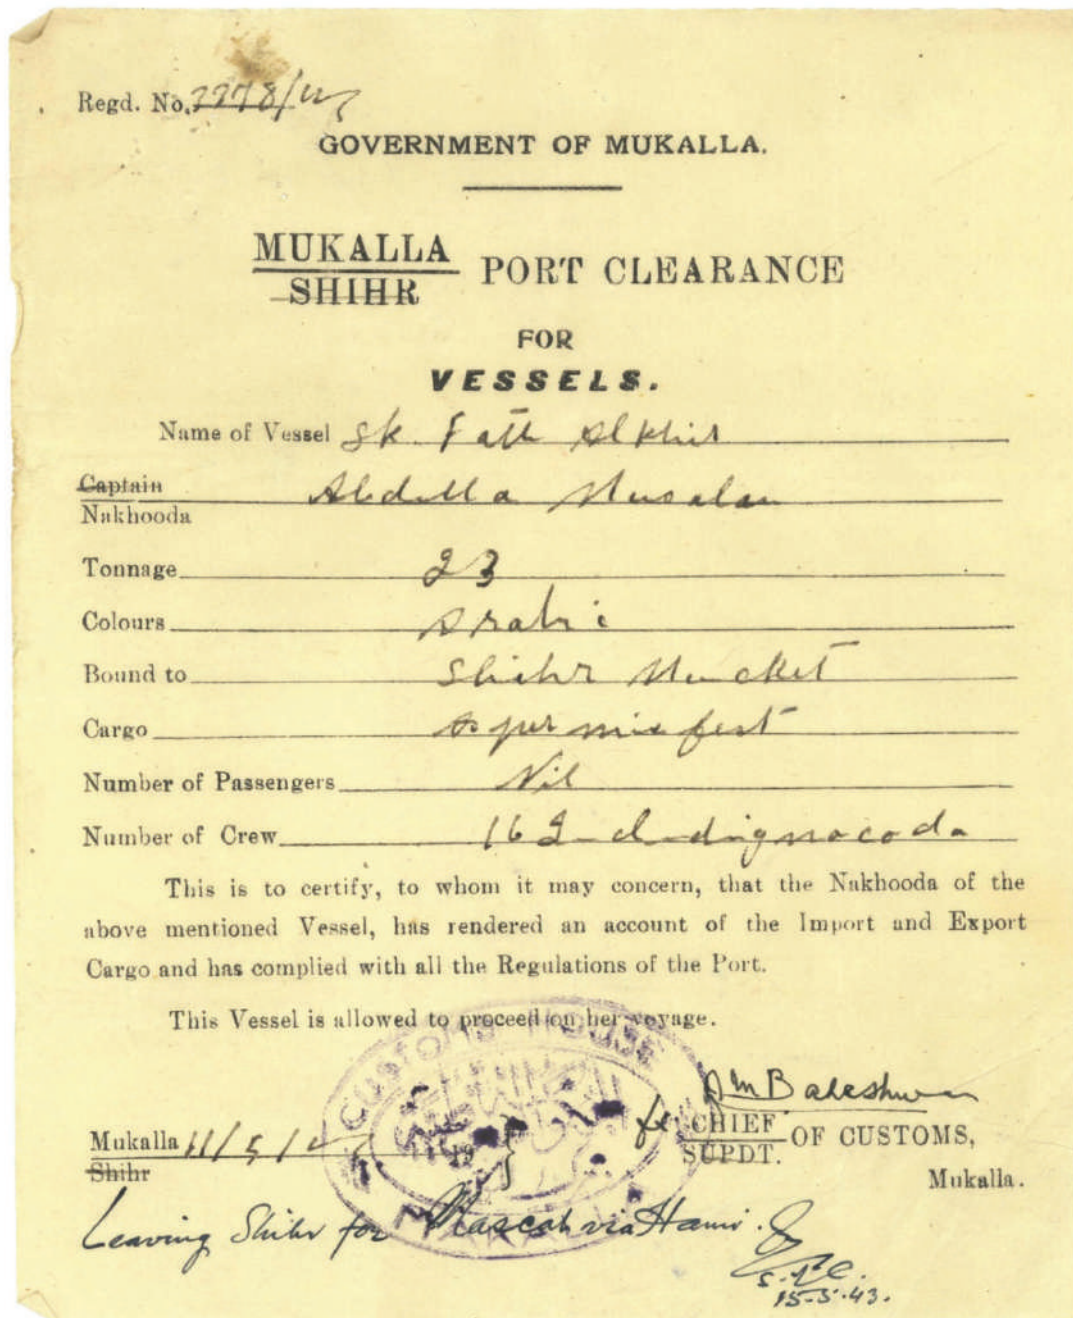 Regd. No. 2278/
GOVERNMENT OF MUKALLA.
MUKALLA
SHIHR
PORT CLEARANCE
FOR
VESSELS.
Name of Vessel Sk. Fath Alkhir
Captain
Nakhooda
Abdulla
Tonnage 23
Colours Arabic
Bound to Shihr Muscket
Cargo as per manifest
Number of Passengers Nil
Number of Crew 16 Including nacoda
This is to certify, to whom it may concern, that the Nakhooda of the
above mentioned Vessel, has rendered an account of the Import and Export
Cargo and has complied with all the Regulations of the Port.
This Vessel is allowed to proceed on her voyage.
CUSTOMS HOUSE
MUKALLA
CHIEF
SUPDT.
OF CUSTOMS,
Mukalla.
Mukalla 11/5/ 19
Shihr
Leaving Shihr for Mascat via Hami.
15-5-43.